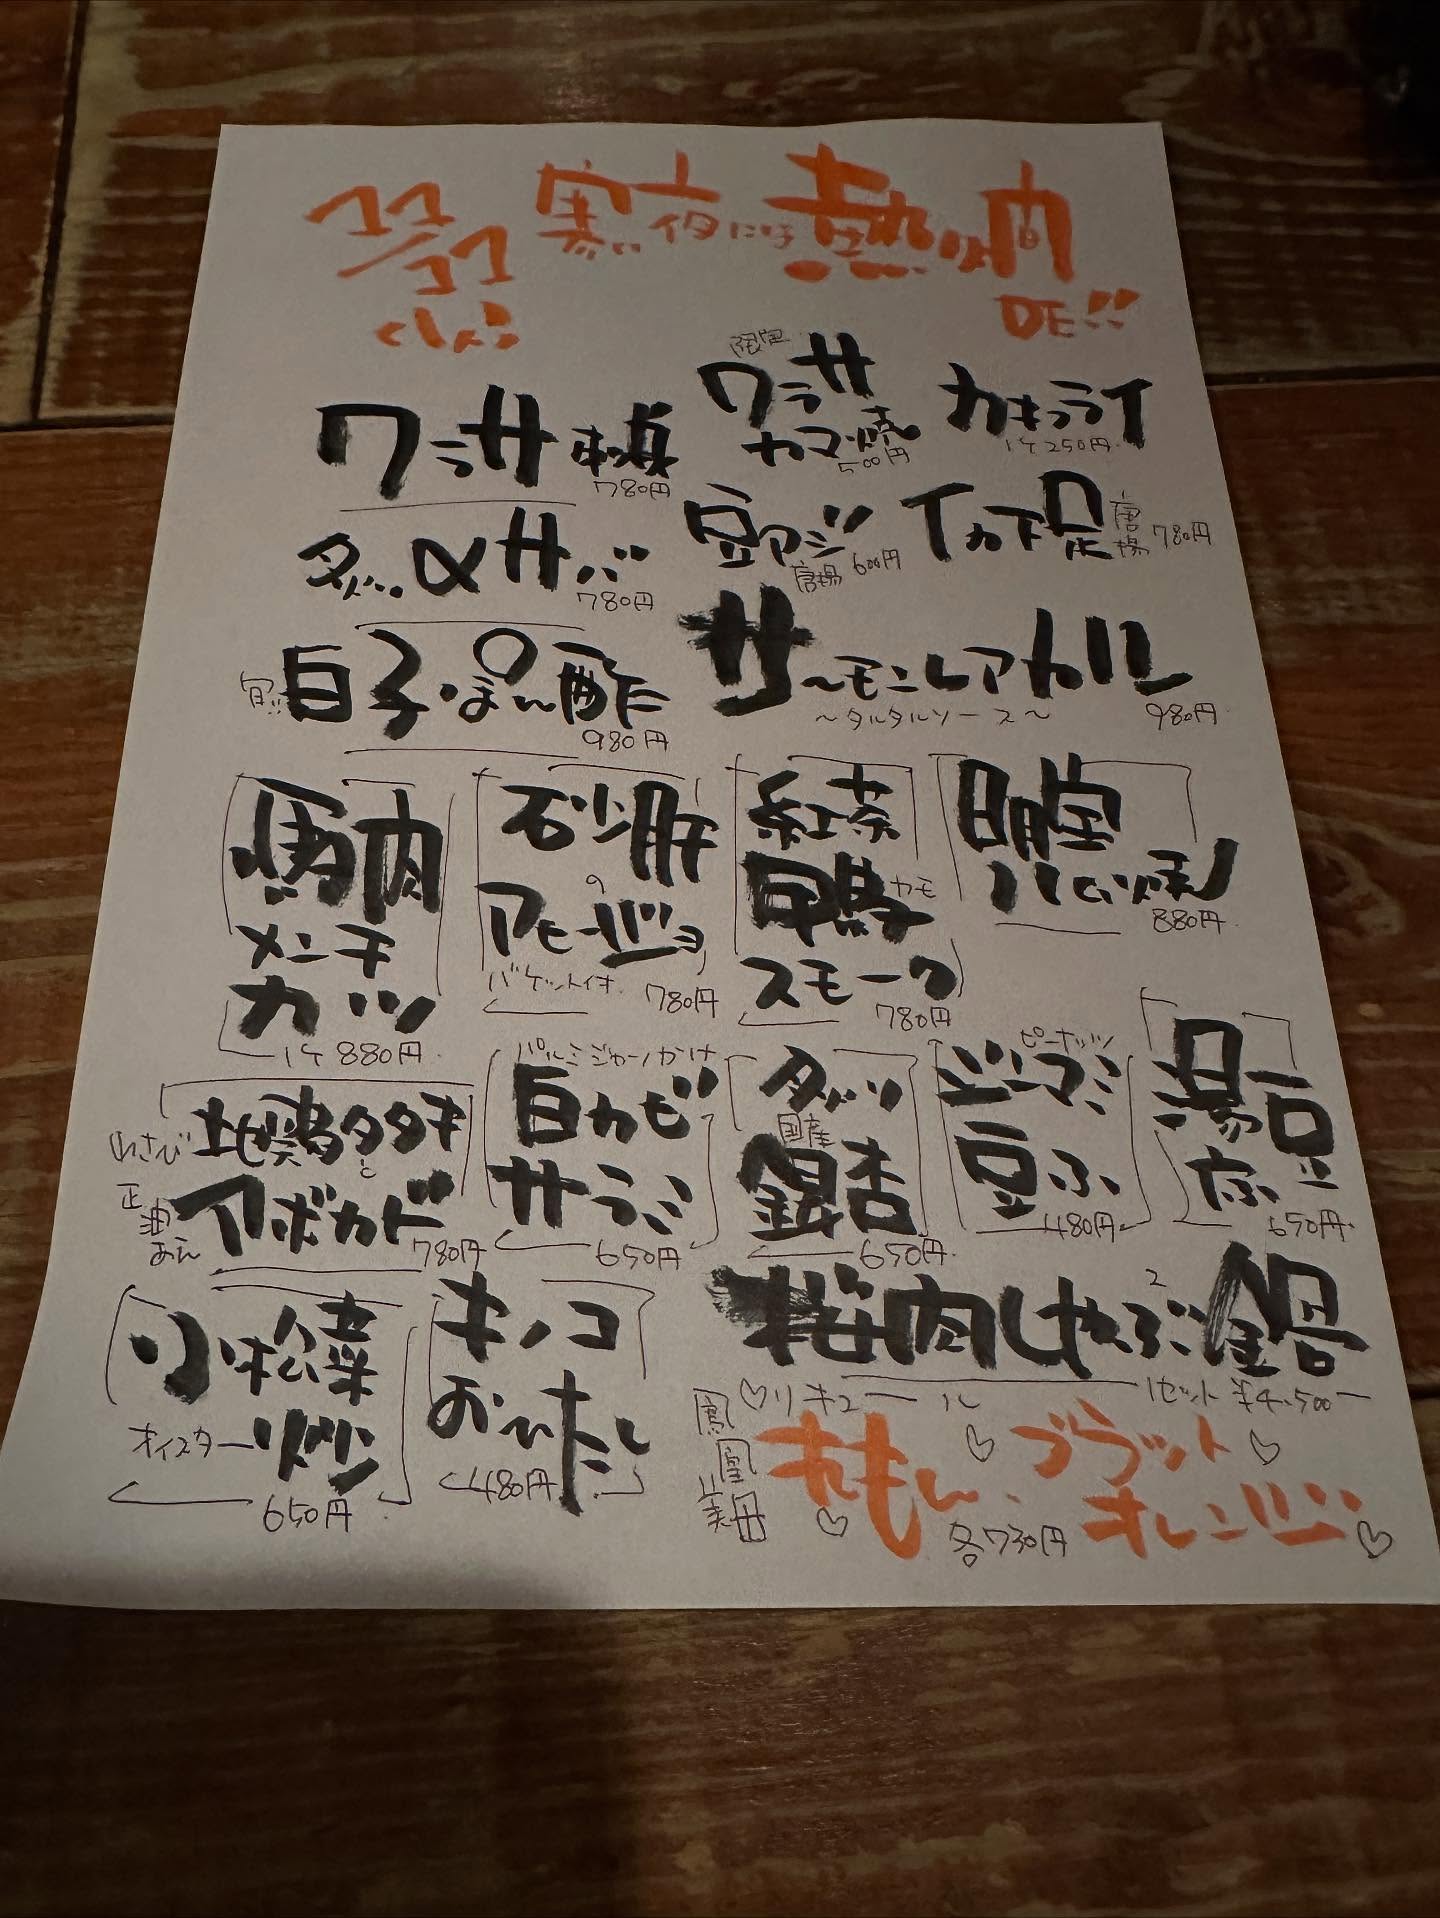 ココ
ココ
くしょう
寒い夜には熱燗
DE!!
ワラサ刺身
780円
限定
ワラサ
カマ焼
500円
カキフライ
1ケ250円
炙〆サバ
780円
豆アジ
唐揚 600円
イカ下足
唐揚 780円
旬!! 白子ぽん酢
980円
サーモンレアカツ
~タルタルソース~
980円
馬肉
メンチ
カツ
1ケ 880円
砂肝
の
アヒージョ
バケット付
780円
紅茶
鴨 カモ
スモーク
780円
明宝
ハム焼
880円
地鶏タタキ
と
わさび
正油
あえ
アボカド
780円
パルミジャーノかけ
白カビ
サラミ
650円
国産
銀杏
650円
ピーナッツ
ジーマミ
豆ふ
480円
湯豆
ふ
650円
小松菜
オイスター炒
650円
キノコ
おひたし
480円
桜肉しゃぶ鍋
1セット ¥4,500ー
♡リキュール
鳳凰美田
れもん、ブラッド
オレンジ
各730円